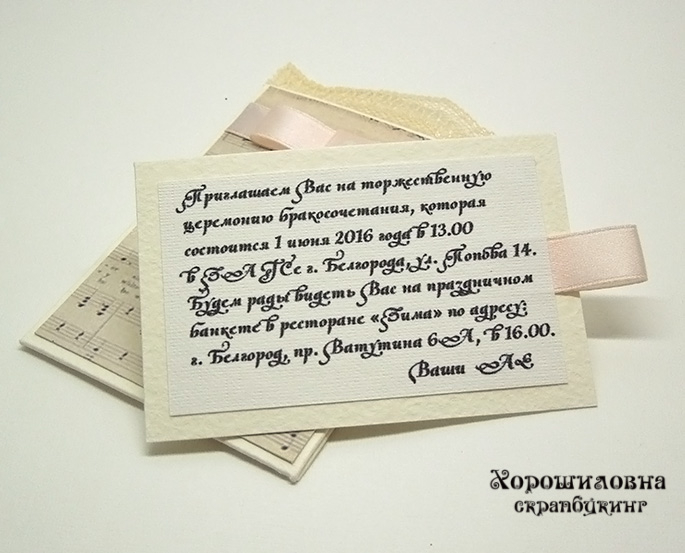 Приглашаем Вас на торжественную
церемонию бракосочетания, которая
состоится 1 июня 2016 года в 13.00
в ЗАГСе г. Белгорода, ул. Попова 14.
Будем рады видеть Вас на праздничном
банкете в ресторане «Зима» по адресу:
г. Белгород, пр. Ватутина 6А, в 16.00.
Ваши
Хорошиловна
скрапбукинг